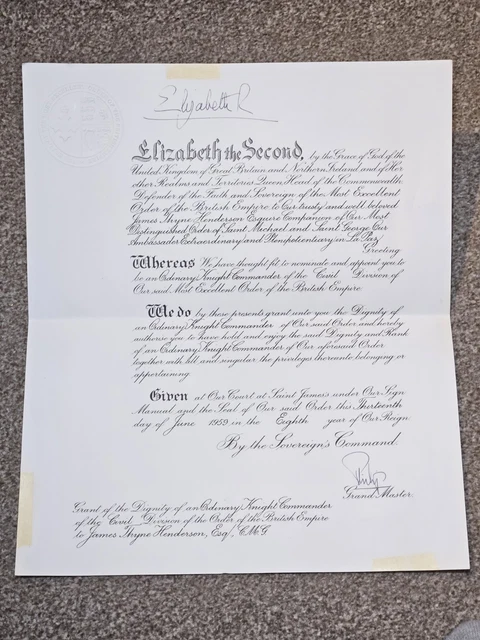 Elizabeth R
Elizabeth the Second, by the Grace of God of the
United Kingdom of Great Britain and Northern Ireland and of Her
other Realms and Territories Queen, Head of the Commonwealth,
Defender of the Faith and Sovereign of the Most Excellent
Order of the British Empire to Our trusty and well beloved
James Thyne Henderson Esquire Companion of Our Most
Distinguished Order of Saint Michael and Saint George Our
Ambassador Extraordinary and Plenipotentiary in La Paz
Greeting
Whereas We have thought fit to nominate and appoint you to
be an Ordinary Knight Commander of the Civil Division of
Our said Most Excellent Order of the British Empire
We do by these presents grant unto you the Dignity of
an Ordinary Knight Commander of Our said Order and hereby
authorise you to have hold and enjoy the said Dignity and Rank
of an Ordinary Knight Commander of Our aforesaid Order
together with all and singular the privileges thereunto belonging or
appertaining.
Given at Our Court at Saint James's under Our Sign
Manual and the Seal of Our said Order this Thirteenth
day of June 1959 in the Eighth year of Our Reign
By the Sovereign's Command
Philip
Grand Master.
Grant of the Dignity of an Ordinary Knight Commander
of the Civil Division of the Order of the British Empire
to James Thyne Henderson, Esq., CMG